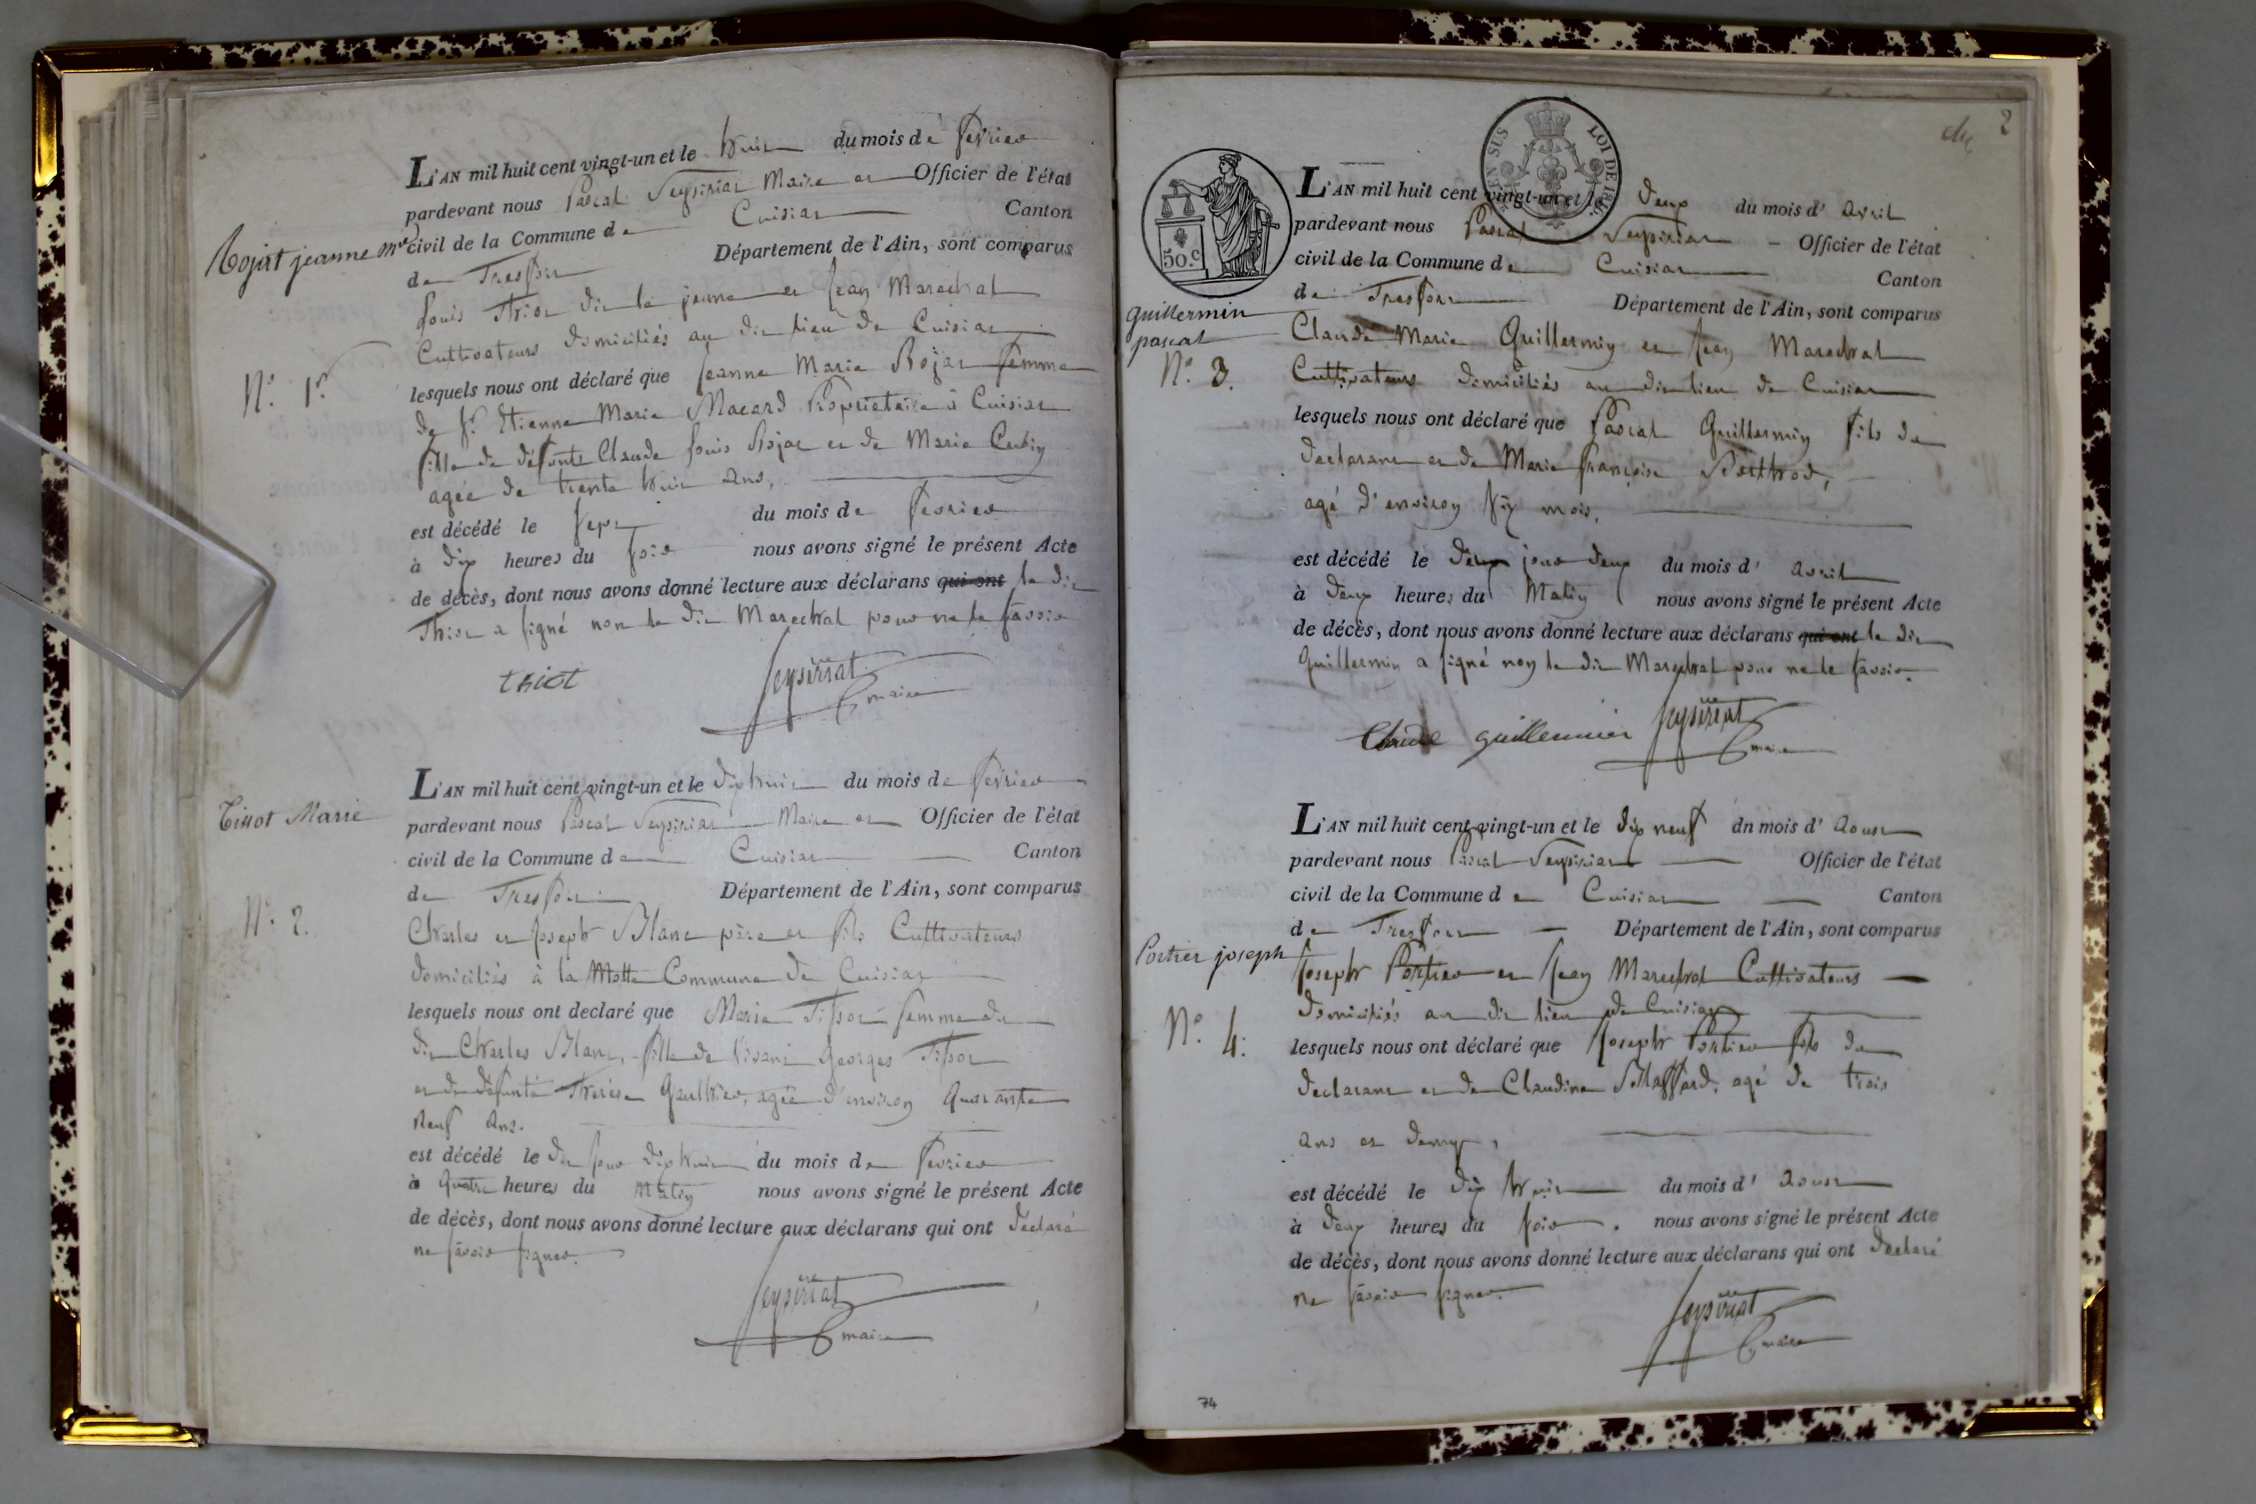 L'AN mil huit cent vingt-un et le huit du mois de fevrier
pardevant nous Pascal Seysiriat Maire et Officier de l'état
civil de la Commune de Cuisiat Canton
de Treffort Département de l'Ain, sont comparus
Louis Thiot dit le jeune et Jean Marechal
Cultivateurs domiciliés au dit lieu de Cuisiat
lesquels nous ont déclaré que Jeanne Marie Rojat femme
de Sr Etienne Marie Macard Propriétaire à Cuisiat
fille de défunts Claude Louis Rojat et de Marie
agée de trente huit ans,
est décédé le sept du mois de fevrier
à dix heures du soir nous avons signé le présent Acte
de décès, dont nous avons donné lecture aux déclarans qui ont le dit
Thiot a signé non le dit Marechal pour ne le savoir
thiot Seysiriat
maire
Rojat jeanne Mie
N.° 1r
L'AN mil huit cent vingt-un et le dix huit du mois de fevrier
pardevant nous Pascal Seysiriat Maire et Officier de l'état
civil de la Commune de Cuisiat Canton
de Treffort Département de l'Ain, sont comparus
Charles et Joseph Blanc père et fils Cultivateurs
domiciliés à la Motte Commune de Cuisiat
lesquels nous ont declaré que Marie Tissot femme du
dit Charles Blanc, fille de vivant Georges Tissot
et de défunte Therèse Gaulthier, agée d'environ quarante
neuf ans.
est décédé le du jour dix huit du mois de fevrier
à quatre heures du matin nous avons signé le présent Acte
de décès, dont nous avons donné lecture aux déclarans qui ont déclaré
ne savoir signer.
Seysiriat
maire
Tissot Marie
N.° 2.
2
50.c
EN SUS LOI DE 1816.
L'AN mil huit cent vingt-un et le deux du mois d' avril
pardevant nous Pascal Seysiriat Officier de l'état
civil de la Commune de Cuisiat Canton
de Treffort Département de l'Ain, sont comparus
Claude Marie Guillermin et Jean Marechal
Cultivateurs domiciliés au dit lieu de Cuisiat
lesquels nous ont déclaré que Pascal Guillermin fils du
declarant et de Marie françoise Berthod,
agé d'environ six mois,
est décédé le deux jour deux du mois d' avril
à deux heures du Matin nous avons signé le présent Acte
de décès, dont nous avons donné lecture aux déclarans qui ont le dit
Guillermin a signé non le dit Marechal pour ne le savoir.
Claude guillermin Seysiriat
maire
guillermin
pascal
N.° 3.
L'AN mil huit cent vingt-un et le dix neuf dn mois d' aoust
pardevant nous Pascal Seysiriat Officier de l'état
civil de la Commune de Cuisiat Canton
de Treffort Département de l'Ain, sont comparus
Joseph Portier et Jean Marechal Cultivateurs
domiciliés au dit lieu de Cuisiat
lesquels nous ont déclaré que Joseph Portier fils du
declarant et de Claudine agé de trois
ans et demy,
est décédé le dix huit du mois d' aoust
à deux heures du soir. nous avons signé le présent Acte
de décès, dont nous avons donné lecture aux déclarans qui ont declaré
ne savoir signer.
Seysiriat
maire
Portier joseph
N.° 4.
74